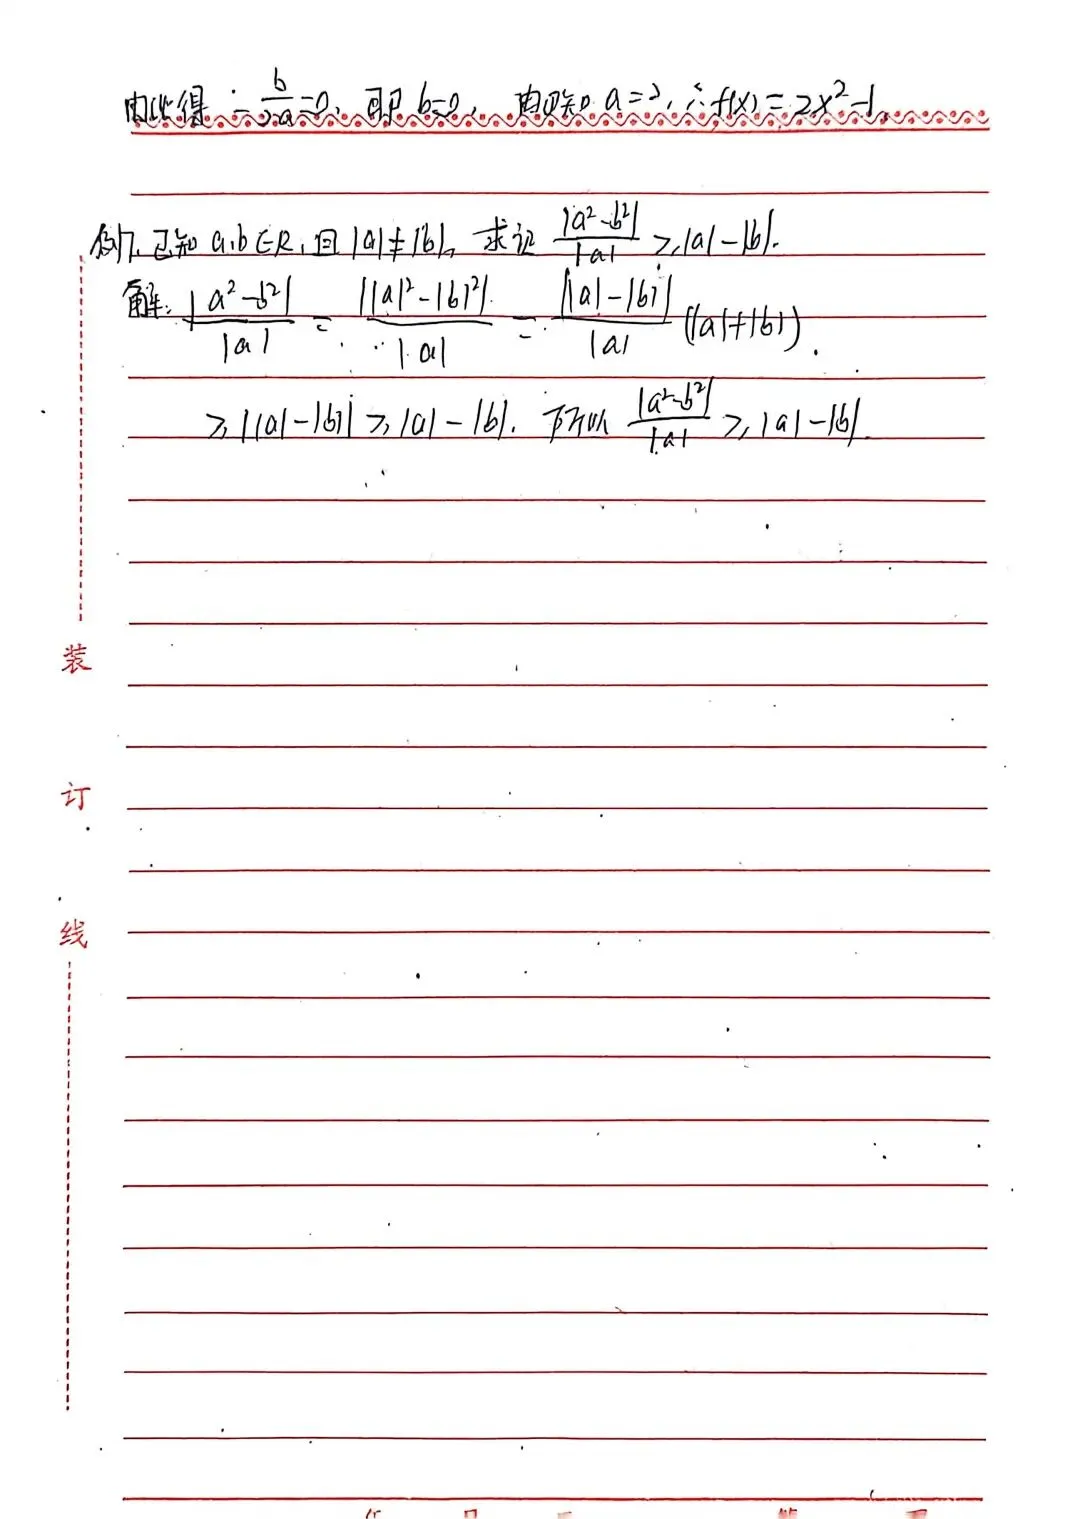 由此得 -b/2a=0, 即 b=0, 由②知 a=2, ∴f(x)=2x²-1.
例7. 已知 a,b∈R, 且 |a|≠|b|, 求证 |a²-b²|/|a| ≥ |a|-|b|.
解: |a²-b²|/|a| = ||a|²-|b|²|/|a| = ||a|-|b||/|a| (|a|+|b|).
≥ ||a|-|b|| ≥ |a|-|b|. 所以 |a²-b²|/|a| ≥ |a|-|b|.
装
订
线